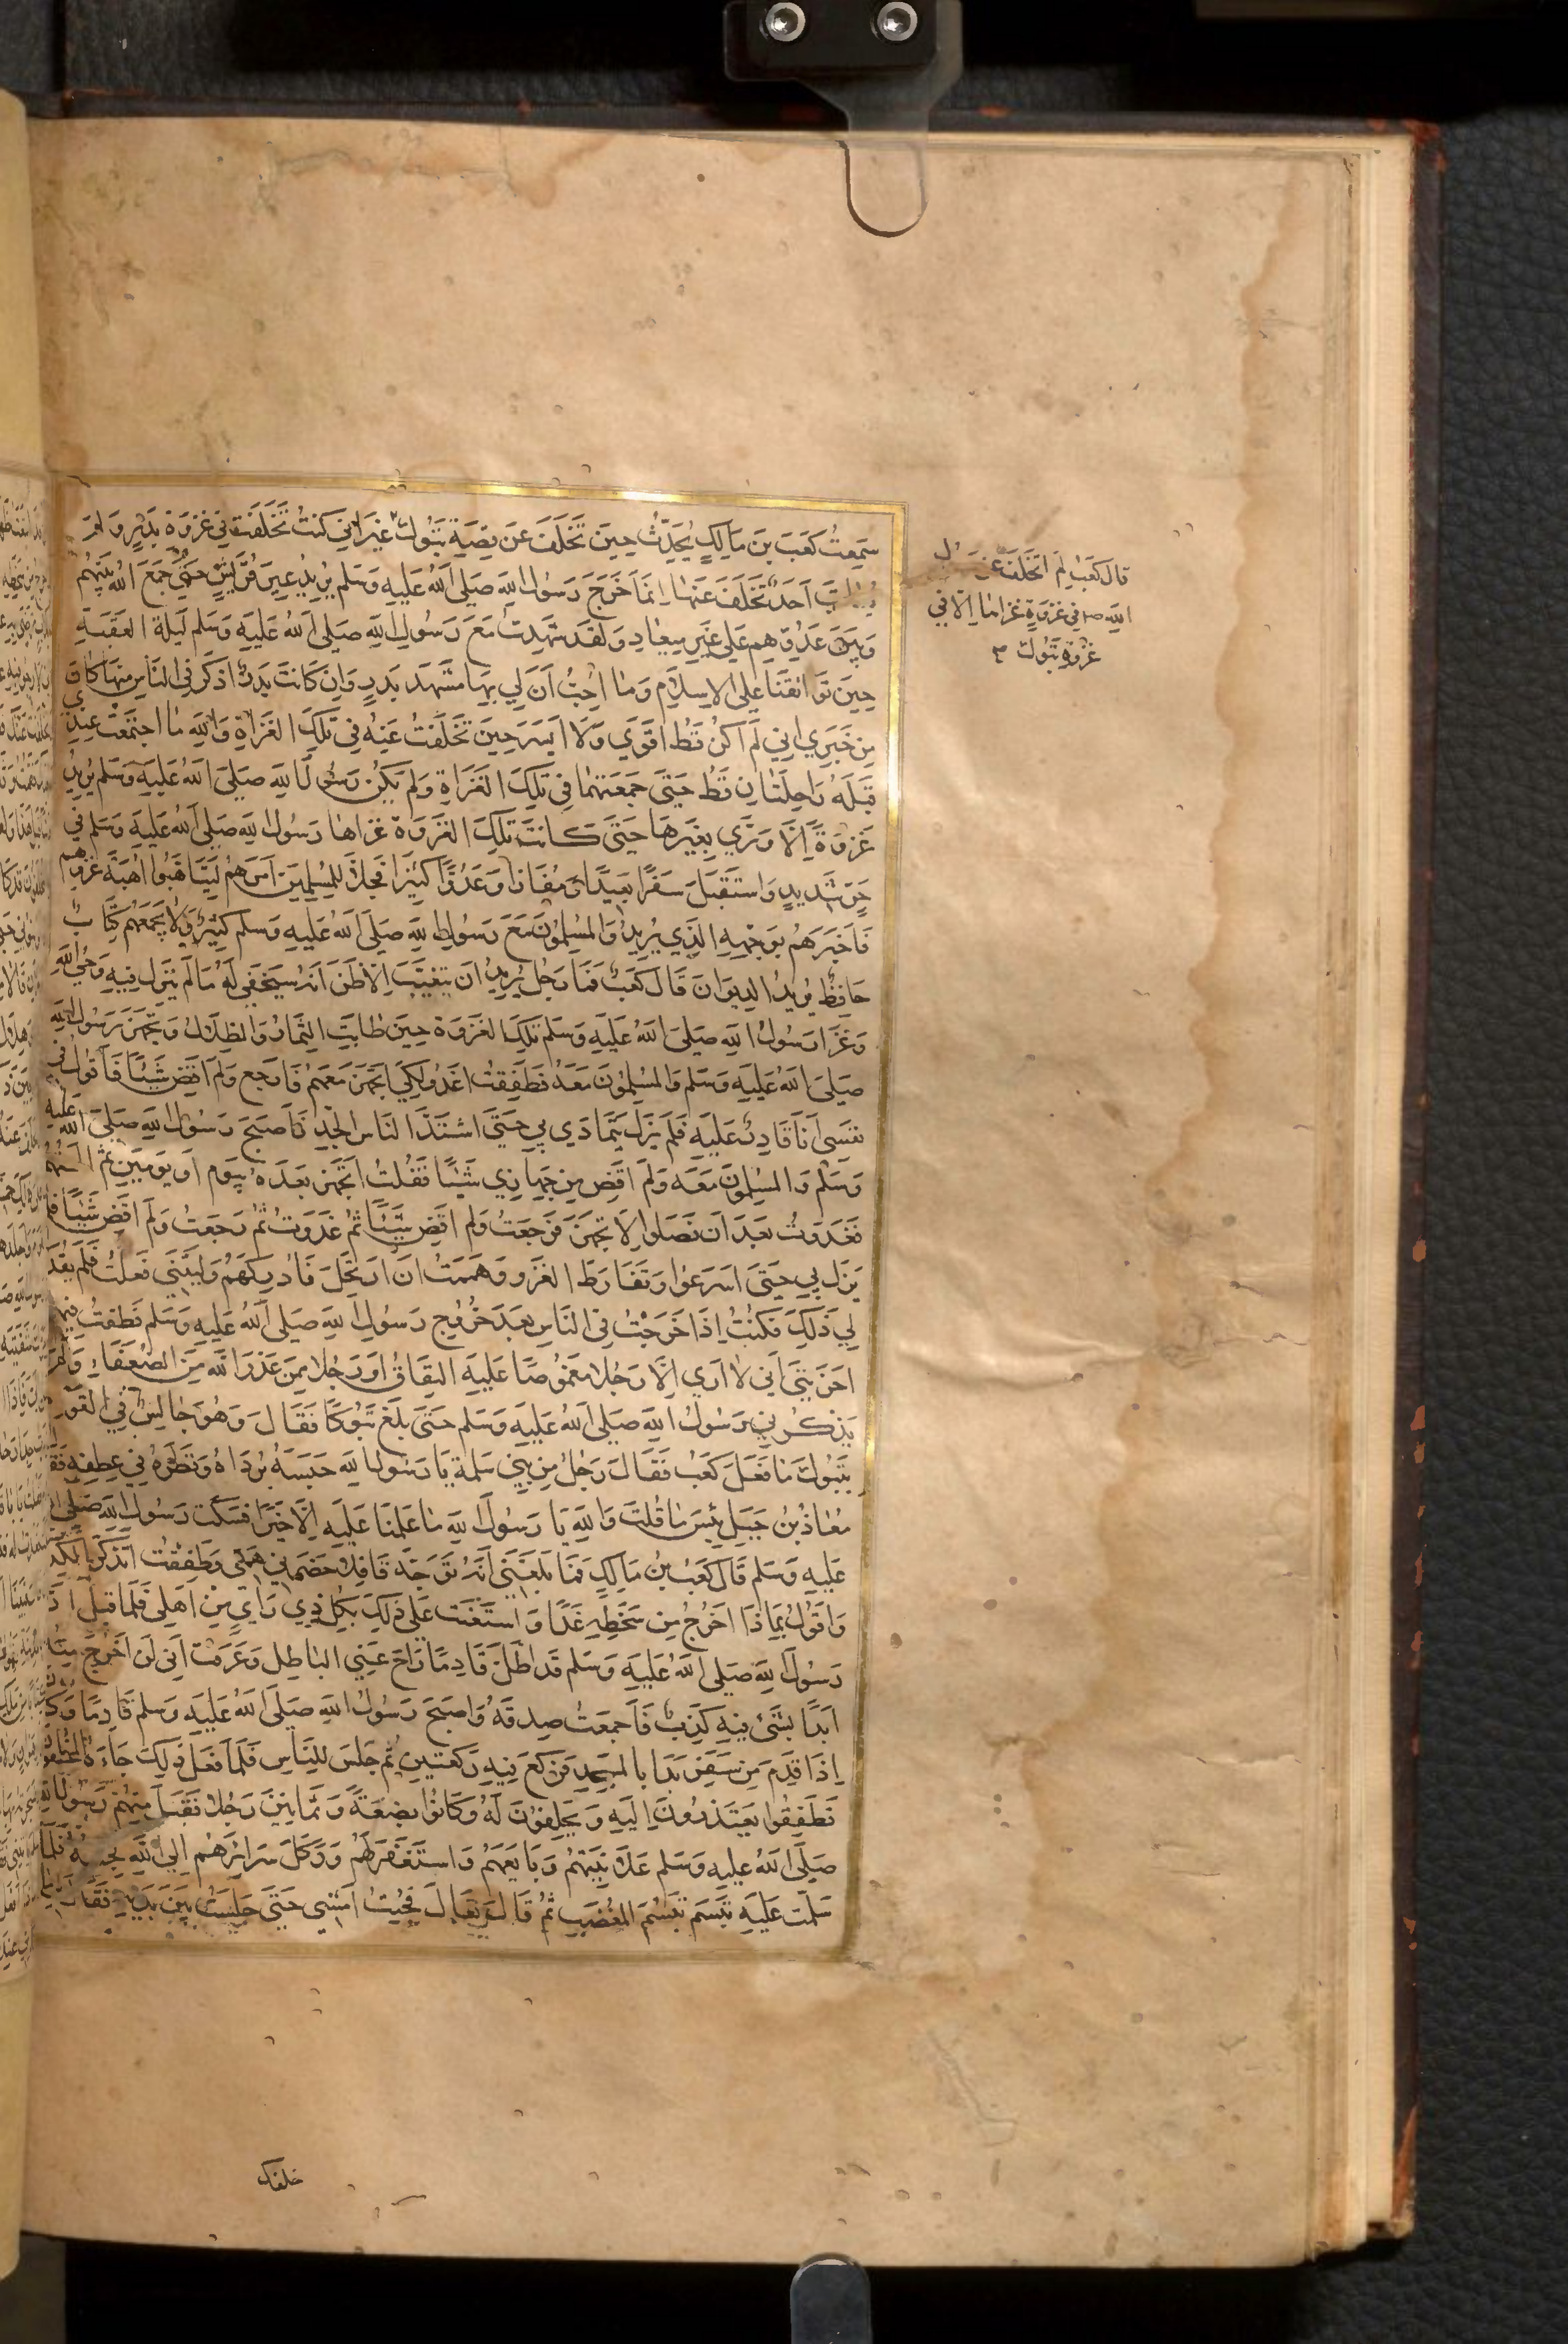 سَمِعتُ كَعبَ بنَ مَالِكٍ يُحَدِّثُ حِينَ تَخَلَّفَ عَن قِصَّةِ تَبُوكَ غَيرَ اَنّي كُنتُ تَخَلَّفتُ في غَزوَةِ بَدرٍ وَلَم
اَحَدٌ تَخَلَّفَ عَنهَا اِنَّمَا خَرَجَ رَسُولُ اللّهِ صَلَّى اللّهُ عَلَيهِ وَسَلَّم يُرِيدُ عِيرَ قُرَيشٍ حَتّى جَمَعَ اللّهُ بَينَهُم
وَبَينَ عَدُوِّهِم عَلى غَيرِ مِيعَادٍ وَلَقَد شَهِدتُ مَعَ رَسُولِ اللّهِ صَلَّى اللّهُ عَلَيهِ وَسَلَّم لَيلَةَ العَقَبَةِ
حِينَ تَوَاثَقنَا عَلى الاِسلَامِ وَمَا اُحِبُّ اَنَّ لِي بِهَا مَشهَدَ بَدرٍ وَاِن كَانَت بَدرٌ اَذكَرَ في النَّاسِ مِنهَا كَانَ
مِن خَبَرِي اَنّي لَم اَكُن قَطُّ اَقوَي وَلَا اَيسَرَ حِينَ تَخَلَّفتُ عَنهُ في تِلكَ الغَزَاةِ وَاللّهِ مَا اجتَمَعَت عِندِي
قَبلَهُ رَاحِلَتَانِ قَطُّ حَتّى جَمَعتُهُمَا في تِلكَ الغَزَاةِ وَلَم يَكُن رَسُولُ اللّهِ صَلَّى اللّهُ عَلَيهِ وَسَلَّم يُرِيدُ
غَزوَةً اِلَّا وَرَّي بِغَيرِهَا حَتّى كَانَت تِلكَ الغَزوَةُ غَزَاهَا رَسُولُ اللّهِ صَلَّى اللّهُ عَلَيهِ وَسَلَّم في
حَرٍّ شَدِيدٍ وَاستَقبَلَ سَفَرًا بَعِيدًا وَمَفَازًا وَعَدُوًّا كَثِيرًا فَجَلَّا لِلمُسلِمِينَ اَمرَهُم لِيَتَاَهَّبُوا اُهبَةَ غَزوِهِم
فَاَخبَرَهُم بِوَجهِهِ الَّذِي يُرِيدُ وَالمُسلِمُونَ مَعَ رَسُولِ اللّهِ صَلَّى اللّهُ عَلَيهِ وَسَلَّم كَثِيرٌ وَلَا يَجمَعُهُم كِتَابٌ
حَافِظٌ يُرِيدُ الدِيوَانَ قَالَ كَعبٌ فَمَا رَجُلٌ يُرِيدُ اَن يَتَغَيَّبَ اِلَّا ظَنَّ اَنَّهُ سَيَخفَي لَهُ مَا لَم يَنزِل فِيهِ وَحيُ اللّهِ
وَغَزَا رَسُولُ اللّهِ صَلَّى اللّهُ عَلَيهِ وَسَلَّم تِلكَ الغَزوَةَ حِينَ طَابَتِ الثِّمَارُ وَالظِّلَالُ وَتَجَهَّزَ رَسُولُ اللّهِ
صَلَّى اللّهُ عَلَيهِ وَسَلَّم وَالمُسلِمُونَ مَعَهُ فَطَفِقتُ اَغدُو لِكَي اَتَجَهَّزَ مَعَهُم فَاَرجِعُ وَلَم اَقضِ شَيئًا فَاَقُولُ في
نَفسِي اَنَا قَادِرٌ عَلَيهِ فَلَم يَزَل يَتَمَادَي بِي حَتّى اشتَدَّ النَّاسَ الجِدُّ فَاَصبَحَ رَسُولُ اللّهِ صَلَّى اللّهُ عَلَيهِ
وَسَلَّم وَالمُسلِمُونَ مَعَهُ وَلَم اَقضِ مِن جَهَازِي شَيئًا فَقُلتُ اَتَجَهَّزُ بَعدَهُ بِيَومٍ اَو يَومَينِ ثُمَّ اَلحَقُهُم
فَغَدَوتُ بَعدَ اَن فَصَلُوا لِاَتَجَهَّزَ فَرَجَعتُ وَلَم اَقضِ شَيئًا ثُمَّ غَدَوتُ ثُمَّ رَجَعتُ وَلَم اَقضِ شَيئًا فلم
يَزَل بِي حَتّى اَسرَعُوا وَتَفَارَطَ الغَزوُ وَهَمَمتُ اَن اَرتَحِلَ فَاُدرِكَهُم وَلَيتَنِي فَعَلتُ فَلَم يُقَدَّر
لِي ذَلِكَ فَكُنتُ اِذَا خَرَجتُ في النَّاسِ بَعدَ خُرُوجِ رَسُولِ اللّهِ صَلَّى اللّهُ عَلَيهِ وَسَلَّم فَطُفتُ فيهم
اَحزَنَنِي اَنّي لَا اَرَي اِلَّا رَجُلًا مَغمُوصًا عَلَيهِ النِفَاقُ اَو رَجُلًا مِمَّن عَذَرَ اللّهُ مِنَ الضُّعَفَاءِ وَلَم
يَذكُرنِي رَسُولُ اللّهِ صَلَّى اللّهُ عَلَيهِ وَسَلَّم حَتّى بَلَغَ تَبُوكًا فَقَالَ وَهُوَ جَالِسٌ في القَومِ
بِتَبُوكَ مَا فَعَلَ كَعبٌ فَقَالَ رَجُلٌ مِن بَنِي سَلِمَةَ يَا رَسُولَ اللّهِ حَبَسَهُ بُردَاهُ وَنَظَرُهُ في عِطفِهِ فَقَال
مُعَاذُ بنُ جَبَلٍ بِئسَ مَا قُلتَ وَاللّهِ يَا رَسُولَ اللّهِ مَا عَلِمنَا عَلَيهِ اِلَّا خَيرًا فَسَكَتَ رَسُولُ اللّهِ صَلَّى اللّه
عَلَيهِ وَسَلَّم قَالَ كَعبُ بنُ مَالِكٍ فَمَا بَلَغَنِي اَنَّهُ تَوَجَّهَ قَافِلًا حَضَرَنِي هَمّي وَطَفِقتُ اَتَذَكَّرُ الكَذِبَ
وَاَقُولُ بِمَاذَا اَخرُجُ مِن سَخَطِهِ غَدًا وَاستَعَنتُ عَلى ذَلِكَ بِكُلِّ ذِي رَايٍ مِن اَهلِي فَلَمَّا قِيلَ اِنَّ
رَسُولَ اللّهِ صَلَّى اللّهُ عَلَيهِ وَسَلَّم قَد اَظَلَّ قَادِمًا زَاحَ عَنِّي البَاطِلُ وَعَرَفتُ اَنّي لَن اَخرُجَ مِنهُ
اَبَدًا بِشَيءٍ فِيهِ كَذِبٌ فَاَجمَعتُ صِدقَهُ وَاَصبَحَ رَسُولُ اللّهِ صَلَّى اللّهُ عَلَيهِ وَسَلَّم قَادِمًا وَكَانَ
اِذَا قَدِمَ مِن سَفَرٍ بَدَا بِالمَسجِدِ فَرَكَعَ فِيهِ رَكعَتَينِ ثُمَّ جَلَسَ لِلنَّاسِ فَلَمَّا فَعَلَ ذَلِكَ جَاءَهُ المُخَلَّفُونَ
فَطَفِقُوا يَعتَذِرُونَ اِلَيهِ وَيَحلِفُونَ لَهُ وَكَانُوا بِضعَةً وَثَمَانِينَ رَجُلًا فَقَبِلَ مِنهُم رَسُولُ اللّهِ
صَلَّى اللّهُ عَلَيهِ وَسَلَّم عَلَانِيَتَهُم وَبَايَعَهُم وَاستَغفَرَ لَهُم وَوَكَّلَ سَرَائِرَهُم اِلَى اللّهِ فَجِئتُهُ فَلَمَّا
سَلَّمتُ عَلَيهِ تَبَسَّمَ تَبَسُّمَ المُغضَبِ ثُمَّ قَالَ تَعَالَ فَجِئتُ اَمشِي حَتّى جَلَستُ بَينَ يَدَيهِ فَقَالَ لِي مَا
قَالَ كَعبٌ لَم اَتَخَلَّف عَن رَسُولِ
اللّهِ ص في غَزوَةٍ غَزَاهَا اِلَّا في
غَزوَةِ تَبُوكَ
خلفك